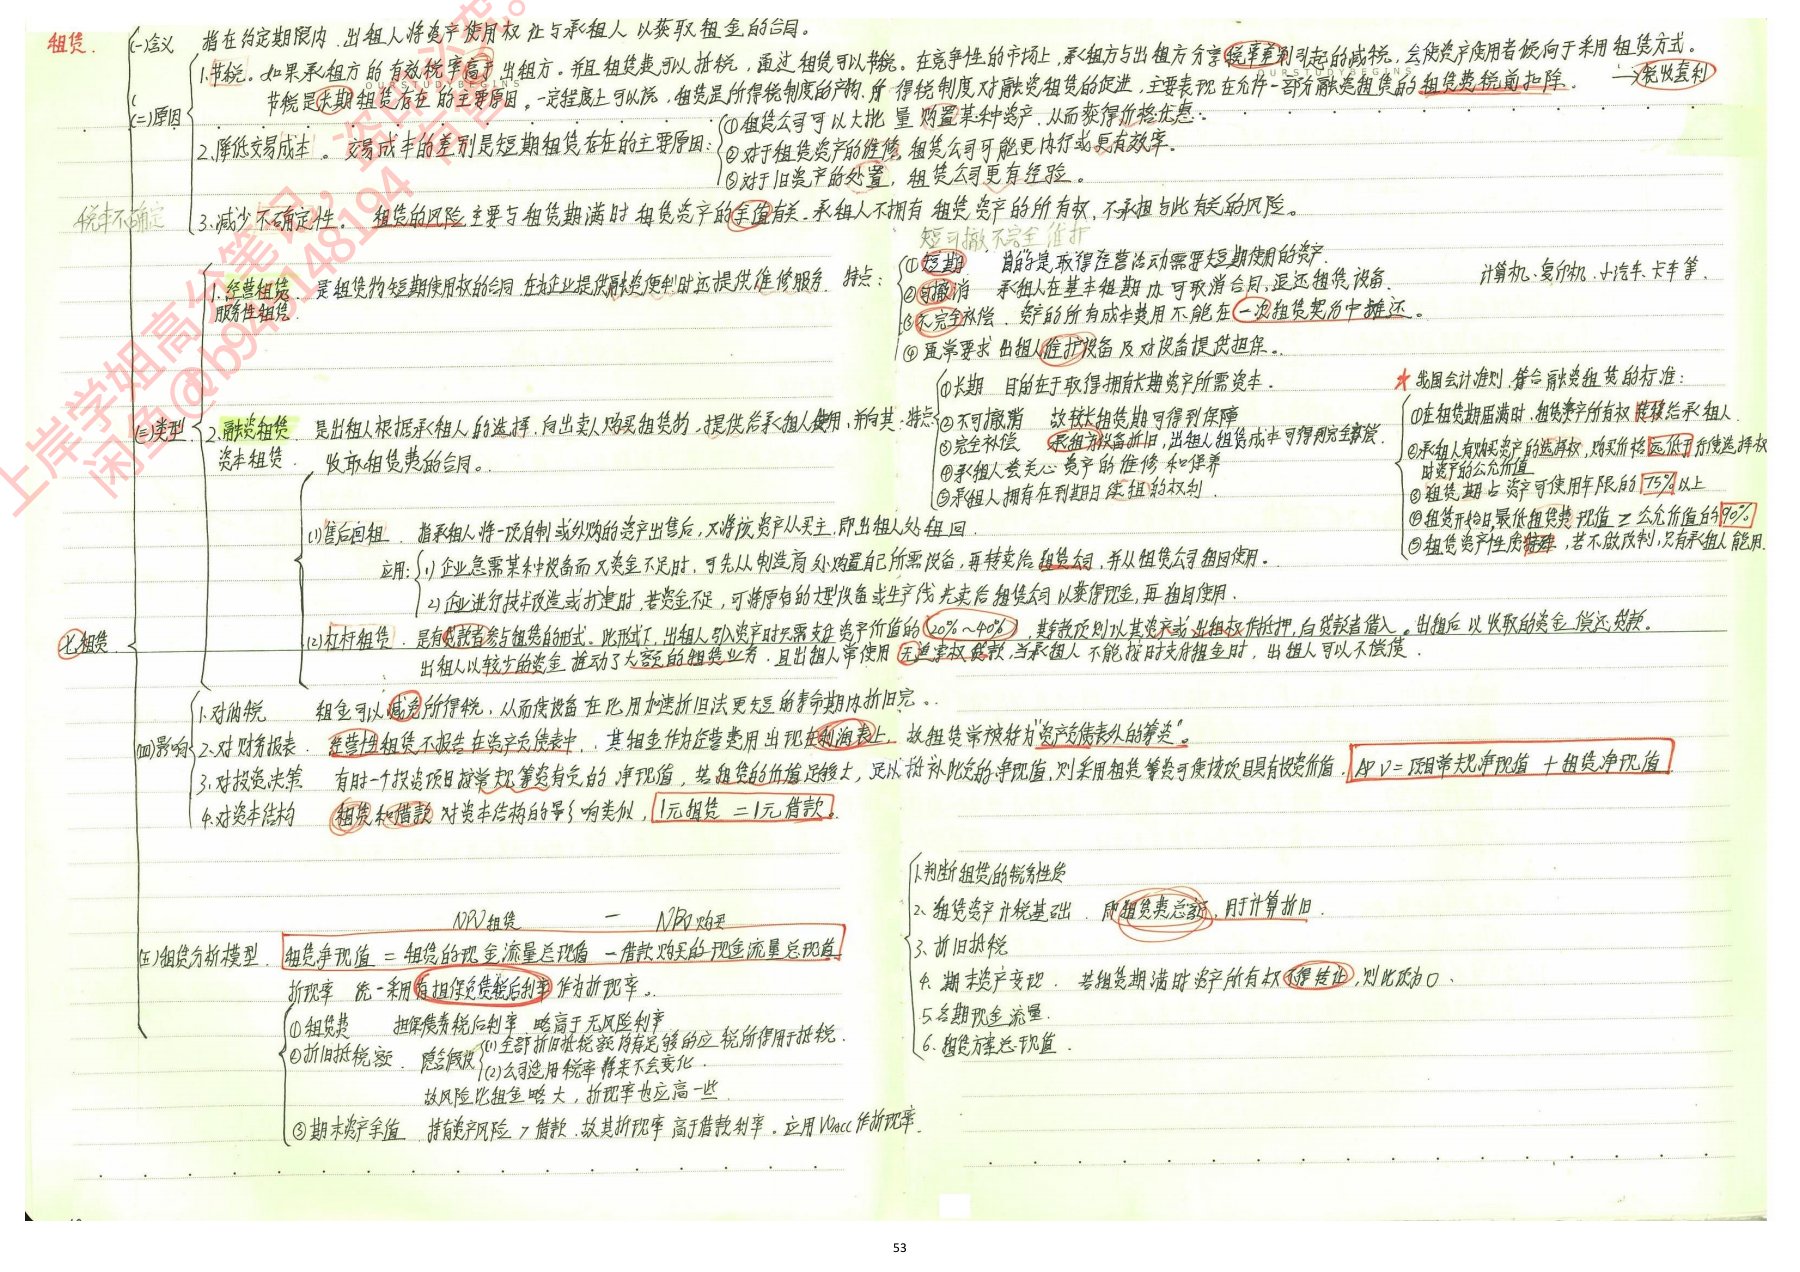 租赁.
(一)含义 指在约定期限内,出租人将资产使用权让与承租人以获取租金的合同。
(二)原因
1.节税。如果承租方的有效税率高于出租方。并且租赁费可以抵税,通过租赁可以节税。在竞争性的市场上,承租方与出租方分享税率差别引起的减税,会使资产使用者倾向于采用租赁方式。
→税收套利
OURSTUDYBEGINS
节税是长期租赁存在的主要原因。一定程度上可以说,租赁是所得税制度的产物。所得税制度对融资租赁的促进,主要表现在允许一部分融资租赁的租赁费税前扣除。
2.降低交易成本。交易成本的差别是短期租赁存在的主要原因:
①租赁公司可以大批量购置某种资产,从而获得价格优惠。
②对于租赁资产的维修,租赁公司可能更内行或更有效率。
③对于旧资产的处置,租赁公司更有经验。
税率不确定
3.减少不确定性。租赁的风险主要与租赁期满时租赁资产的余值有关。承租人不拥有租赁资产的所有权,不承担与此有关的风险。
短可撤不完全维护
(三)类型
1.经营租赁 是租赁物短期使用权的合同,在为企业提供融资便利时还提供维修服务 特点:
服务性租赁.
①短期 目的是取得经营活动需要短期使用的资产. 计算机、复印机、小汽车、卡车等.
②可撤消 承租人在基本租期内可取消合同,退还租赁设备.
③不完全补偿. 资产的所有成本费用不能在一次租赁契约中摊还。
④通常要求出租人维护设备及对设备提供担保。
2.融资租赁 是出租人根据承租人的选择,向出卖人购买租赁物,提供给承租人使用,并向其 特点
资本租赁. 收取租赁费的合同。
①长期 目的在于取得拥有长期资产所需资本.
②不可撤消 故较长租赁期可得到保障
③完全补偿 承租方设备折旧,出租人租赁成本可得到完全补偿.
④承租人会关心资产的维修和保养
⑤承租人拥有在到期日续租的权利.
★我国会计准则,符合融资租赁的标准:
①在租赁期届满时,租赁资产所有权转移给承租人.
②承租人有购买资产的选择权,购买价格远低于行使选择权
时资产的公允价值
③租赁期占资产可使用年限的75%以上
④租赁开始日,最低租赁费现值≥公允价值的90%
⑤租赁资产性质特殊,若不做改制,只有承租人能用.
(1)售后回租. 指承租人将一项自制或外购的资产出售后,又将该资产从买主,即出租人处租回.
应用: 1)企业急需某种设备而又资金不足时,可先从制造商处购置自己所需设备,再转卖给租赁公司,并从租赁公司租回使用。
2)企业进行技术改造或扩建时,若资金不足,可将原有的大型设备或生产线先卖给租赁公司以获得现金,再租回使用.
七.租赁.
(2)杠杆租赁. 是有贷款者参与租赁的形式。此形式下,出租人引入资产时只需支付资产价值的20%~40%,其余款项则以其资产或出租权作抵押,向贷款者借入。出租后以收取的资金偿还贷款.
出租人以较少的资金推动了大额的租赁业务,且出租人常使用无追索权贷款,当承租人不能按时支付租金时,出租人可以不偿债.
(四)影响
1.对纳税 租金可以减免所得税,从而使设备在比用加速折旧法更短的寿命期内折旧完。
2.对财务报表. 经营性租赁不报告在资产负债表中,其租金作为经营费用出现在利润表上,故租赁常被称为"资产负债表外的筹资"。
3.对投资决策 有时一个投资项目按常规筹资有负的净现值,若租赁的价值足够大,足以抵补此负的净现值,则采用租赁筹资可使该项目具有投资价值. APV=项目常规净现值+租赁净现值
4.对资本结构 租赁和借款对资本结构的影响类似, 1元租赁=1元借款。
NPV租赁 — NPV购买
(五)租赁分析模型. 租赁净现值=租赁的现金流量总现值-借款购买的现金流量总现值
折现率 统一采用有担保负债税后利率作为折现率。
①租赁费 担保债券税后利率,略高于无风险利率
②折旧抵税额. 隐含假设 (1)全部折旧抵税额均有足够的应税所得用于抵税.
(2)公司适用税率将来不会变化.
故风险比租金略大,折现率也应高一些
③期末资产余值 持有资产风险>借款.故其折现率高于借款利率。应用WACC作折现率.
1.判断租赁的税务性质
2、租赁资产计税基础. 即租赁费总额,用于计算折旧.
3.折旧抵税
4.期末资产变现. 若租赁期满时资产所有权不得转让,则此项为0.
5.各期现金流量.
6.租赁方案总现值.
上岸学姐高分笔记,咨询
闲鱼@b949148194
53